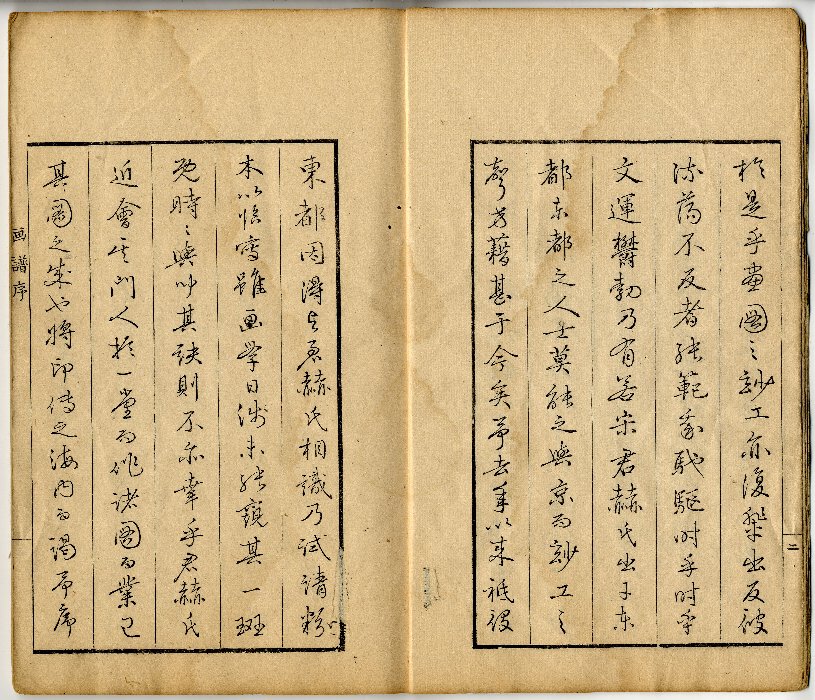 於是乎畫圖之玅工亦復出反彼
流蕩不反者能範我馳駆時乎時乎
文運欝勃乃有若宋君赫氏出于東
都東都之人士莫能之與京而玅工之
聲芳藉甚于今矣予去年以来祗役
二
東都因得与君赫氏相識乃試請粉
本以臨寫雖画学日浅未能窺其一斑
既時〻與叩其訣則不亦幸乎君赫氏
近會其門人於一堂而作諸圖而業已
其圖之成也將印傳之海内而謁予序
画譜序